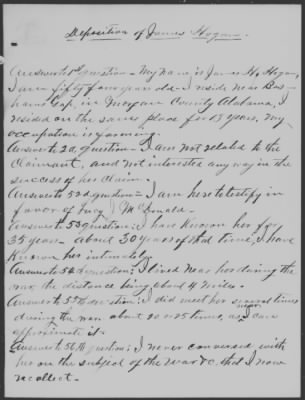 Deposition of James Hogan.
Answer to 1st question - My name is James H. Hogan,
I am fifty four years old - I reside near Bas-
hams Gap, in Morgan County Alabama, I
resided on the same place for 13 years, my
occupation is farming.
Answer to 2d question - I am not related to the
Claimant, and not interested any way in the
success of her claim.
Answer to 52d question - I am here to testify in
favor of Lucy J McDonald.
Answer to 53d question: I have known her for
35 years - about 30 years of that time, I have
known her intimately.
Answer to 54 question: I lived near her during the
war, the distance being about 4 miles.
Answer to 55th question: I did meet her several times
during the war about 20 or 25 times, as I can
approximate it.
Answer to 56th question: I never conversed with
her on the subject of the war &c. that I now
recollect.